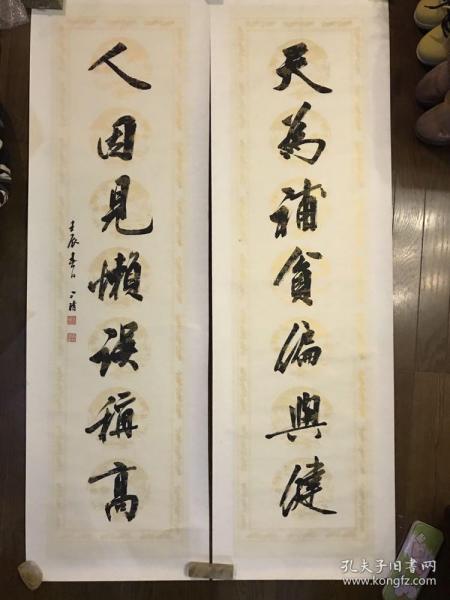 天為補貧偏與健
人因見懶誤稱高
壬辰春日
孔夫子旧书网
www.kongfz.com